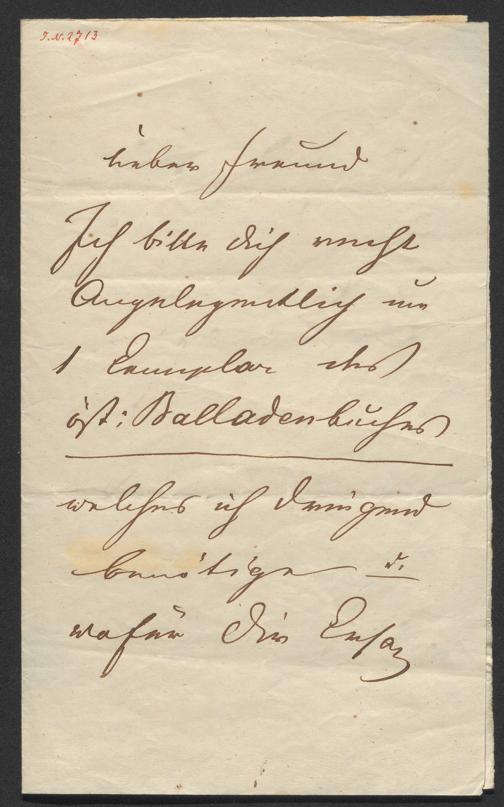 I.N.2713
Lieber Freund
Ich bitte dich recht
Angelegentlich um
1 Exemplar des
öst: Balladenbuches
welches ich dringend
benötige u.
wofür Dir Ersatz